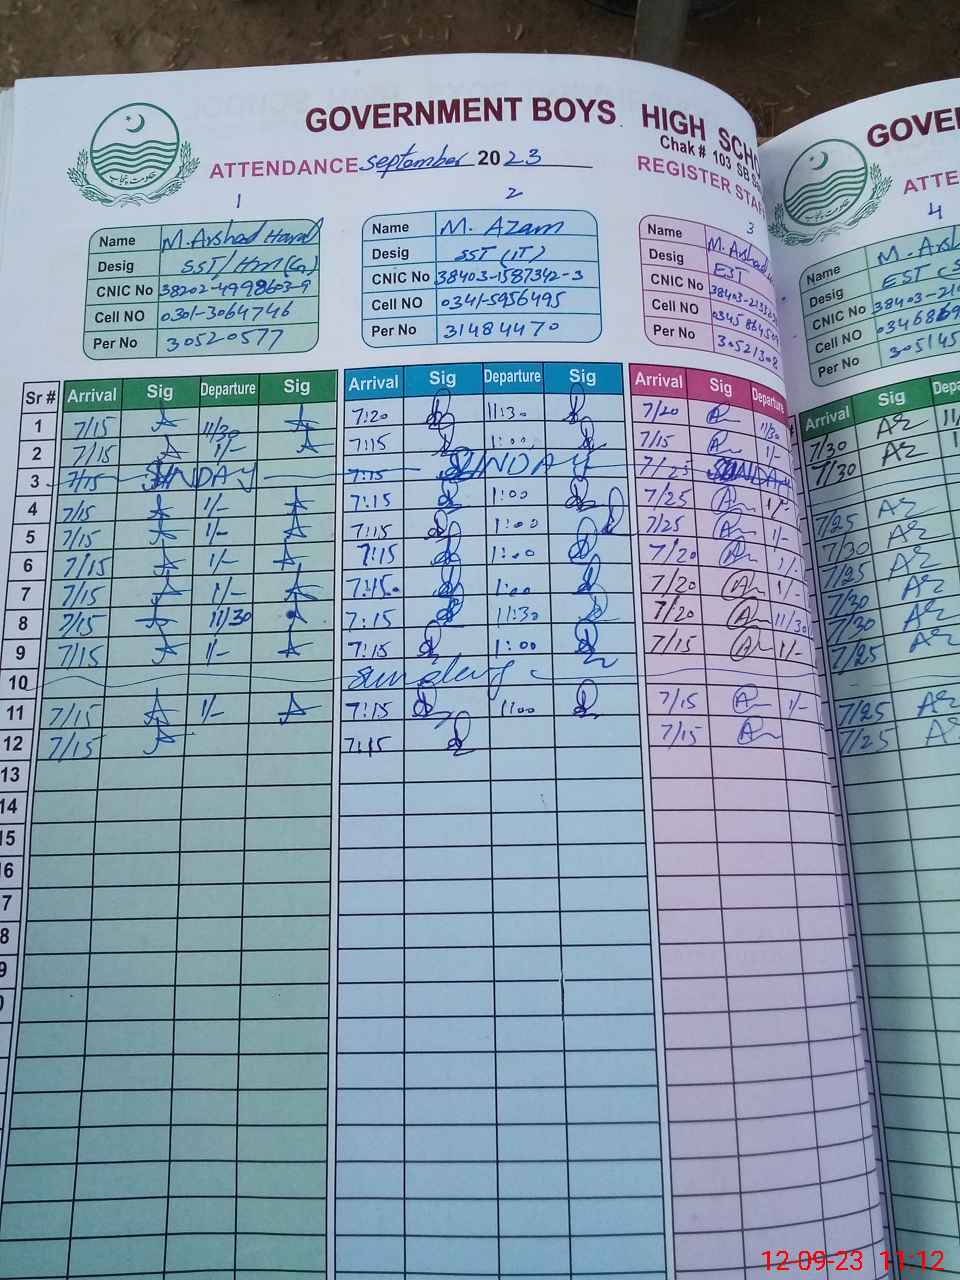 GOVERNMENT BOYS HIGH SCHO
Chak # 103 SB
ATTENDANCE September 2023
REGISTER STAF
حکومت پنجاب
1
Name M. Arshad
Desig SST/HM
CNIC No 38202-4998603-9
Cell NO 0301-3064746
Per No 30520577
2
Name M. Azam
Desig SST (IT)
CNIC No 38403-1587342-3
Cell NO 0341-5956495
Per No 31484470
3
Name M. Arshad
Desig EST
CNIC No 38403-
Cell NO 0345
Per No 30521308
GOVE
ATTE
4
Name M.
Desig EST
CNIC No 38403-
Cell NO 03468
Per No 305145
Sr # Arrival Sig Departure Sig Arrival Sig Departure Sig Arrival Sig Departure Arrival Sig Depa
1 7/15 11/30 7:20 11:30 7/20 11/30 7/30
2 7/15 1/- 7:15 1:00 7/15 1/- 7/30
3 7/15 SUNDAY 7:15 SUNDAY 7/25 SUNDAY
4 7/15 1/- 7:15 1:00 7/25 1/- 7/25
5 7/15 1/- 7:15 1:00 7/25 1/- 7/30
6 7/15 1/- 7:15 1:00 7/20 1/- 7/25
7 7/15 1/- 7:15 1:00 7/20 1/- 7/30
8 7/15 11/30 7:15 11:30 7/20 11/30 7/30
9 7/15 1/- 7:15 1:00 7/15 1/- 7/25
10 sunday
11 7/15 1/- 7:15 1:00 7/15 1/- 7/25
12 7/15 7:15 7/15 7/25
13
14
15
16
7
8
9
0
12-09-23 11:12